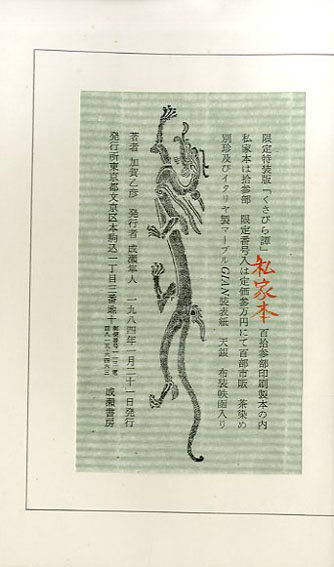 限定特装版『くさびら譚』 百拾参部印刷製本の内
私家本
私家本は拾参部 限定番号入は定価参万円にて百部市販 茶染め
別珍及びイタリヤ製マーブルGIAN装表紙 天銀 布装帙函入り
著者 加賀乙彦 発行者 成瀬隼人 一九八四年一月二十一日発行
発行所東京都文京区本駒込一丁目三番地十 郵便番号一一三 成瀬書房